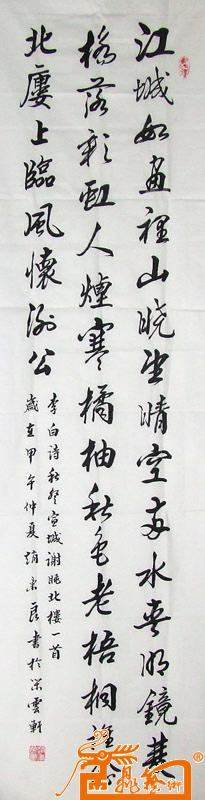 江城如畫裡山晓望晴空两水夹明鏡雙
橋落彩虹人煙寒橘柚秋色老梧桐誰念
北廔上臨風懷谢公
李白诗秋登宣城謝朓北樓一首
歲在甲午仲夏趙良書於雲軒